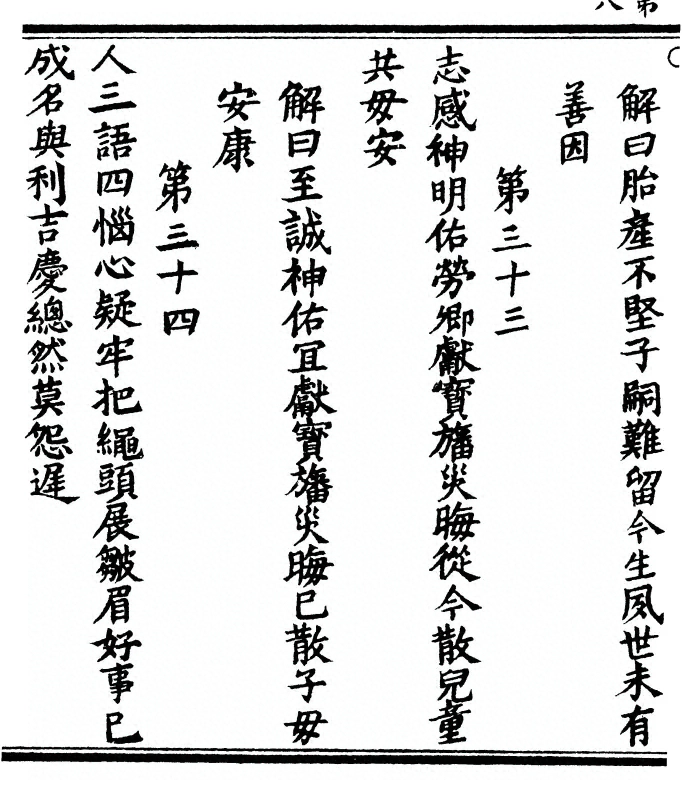 解曰胎產不堅子嗣難留今生夙世未有
善因
第三十三
志感神明佑勞卿獻寶旛災晦從今散兒童
共毋安
解曰至誠神佑冝獻寶旛災晦巳散子毋
安康
第三十四
人三語四惱心疑牢把繩頭展皺眉好事巳
成名與利吉慶總然莫怨遲